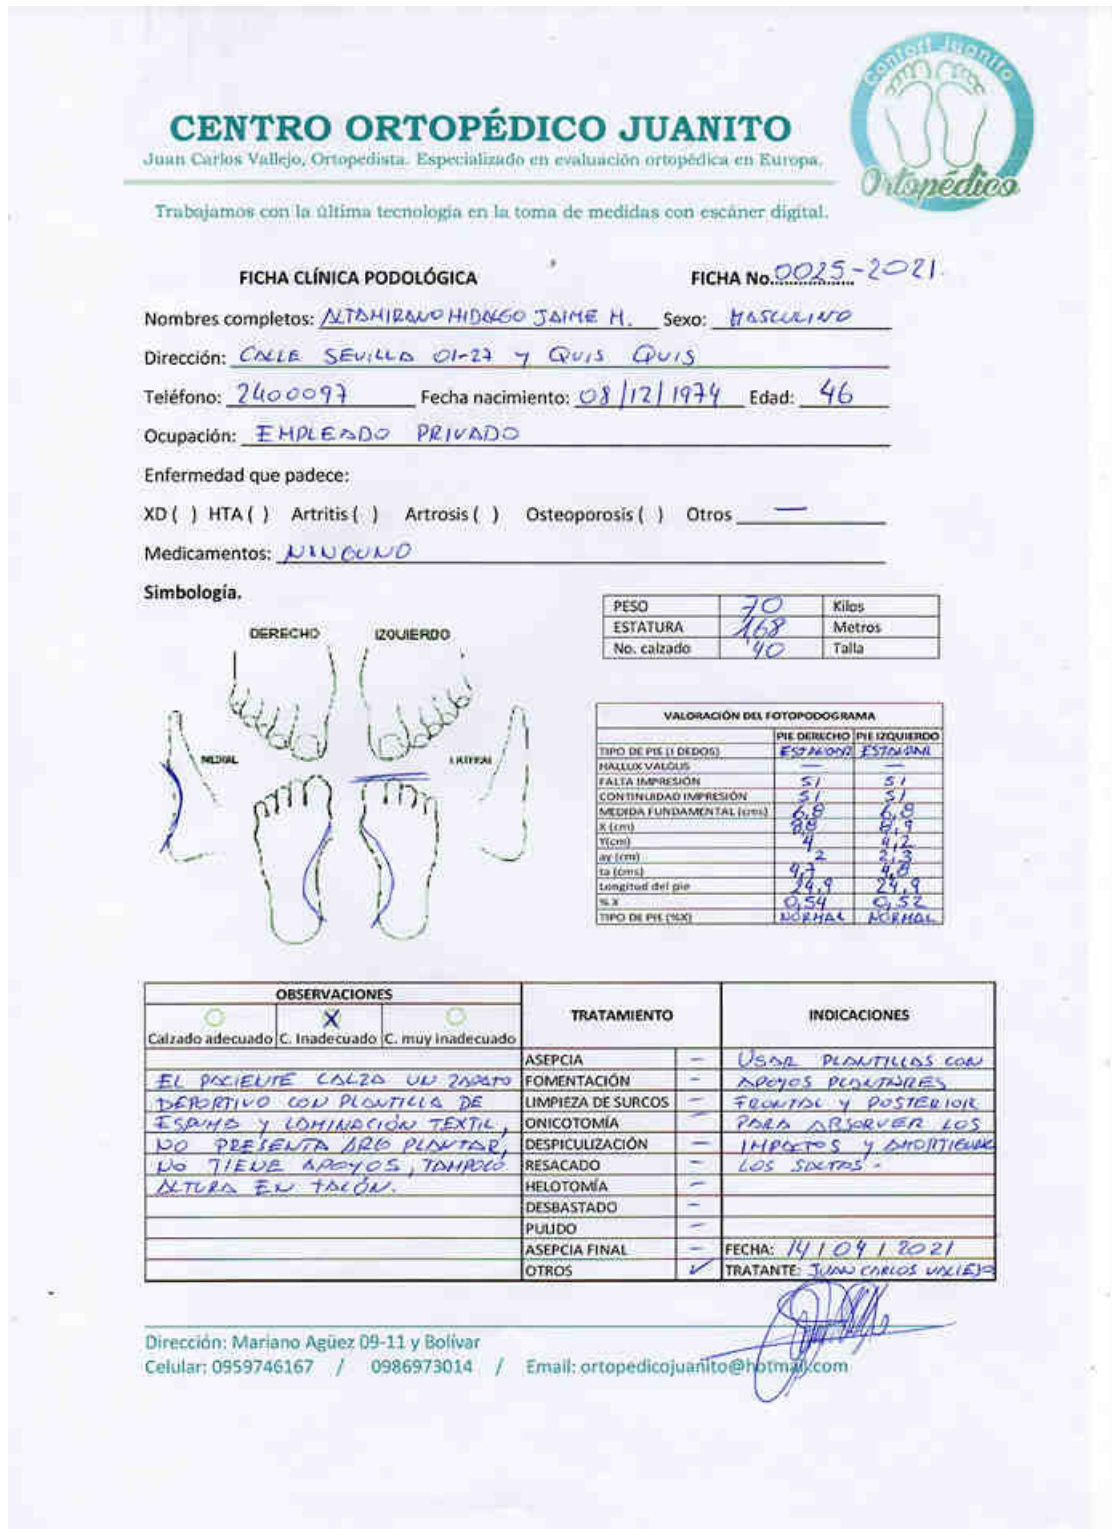 Confort Juanito
Ortopédico
CENTRO ORTOPÉDICO JUANITO
Juan Carlos Vallejo, Ortopedista. Especializado en evaluación ortopédica en Europa.
Trabajamos con la última tecnología en la toma de medidas con escáner digital.
FICHA CLÍNICA PODOLÓGICA FICHA No. 0025-2021.
Nombres completos: ALTAMIRANO HIDALGO JAIME M. Sexo: MASCULINO
Dirección: CALLE SEVILLA 01-27 Y QUIS QUIS
Teléfono: 2400097 Fecha nacimiento: 08/12/1974 Edad: 46
Ocupación: EMPLEADO PRIVADO
Enfermedad que padece:
XD ( ) HTA ( ) Artritis ( ) Artrosis ( ) Osteoporosis ( ) Otros —
Medicamentos: NINGUNO
Simbología.
PESO 70 Kilos
ESTATURA 168 Metros
No. calzado 40 Talla
DERECHO IZQUIERDO
MEDIAL LATERAL
VALORACIÓN DEL FOTOPODOGRAMA
PIE DERECHO PIE IZQUIERDO
TIPO DE PIE (I DEDOS) ESTANDAR ESTANDAR
HALLUX VALGUS — —
FALTA IMPRESIÓN SI SI
CONTINUIDAD IMPRESIÓN SI SI
MEDIDA FUNDAMENTAL (cms) 6,8 6,8
X (cm) 8,8 8,9
Y(cm) 4 4,2
ay (cm) 2 2,3
ta (cms) 4,7 4,8
Longitud del pie 24,9 24,9
% X 0,54 0,52
TIPO DE PIE (%X) NORMAL NORMAL
OBSERVACIONES
Calzado adecuado C. Inadecuado X C. muy inadecuado
EL PACIENTE CALZA UN ZAPATO
DEPORTIVO CON PLANTILLA DE
ESPUMA Y LAMINACIÓN TEXTIL,
NO PRESENTA ARO PLANTAR,
NO TIENE APOYOS, TAMPOCO
ALTURA EN TALÓN.
TRATAMIENTO
ASEPCIA —
FOMENTACIÓN —
LIMPIEZA DE SURCOS —
ONICOTOMÍA —
DESPICULIZACIÓN —
RESACADO —
HELOTOMÍA —
DESBASTADO —
PULIDO —
ASEPCIA FINAL —
OTROS ✓
INDICACIONES
USAR PLANTILLAS CON
APOYOS PLANTARES
FRONTAL Y POSTERIOR
PARA ABSORVER LOS
IMPACTOS Y AMORTIGUAR
LOS SALTOS.
FECHA: 14 / 04 / 2021
TRATANTE: JUAN CARLOS VALLEJO
Dirección: Mariano Agüez 09-11 y Bolívar
Celular: 0959746167 / 0986973014 / Email: ortopedicojuanito@hotmail.com